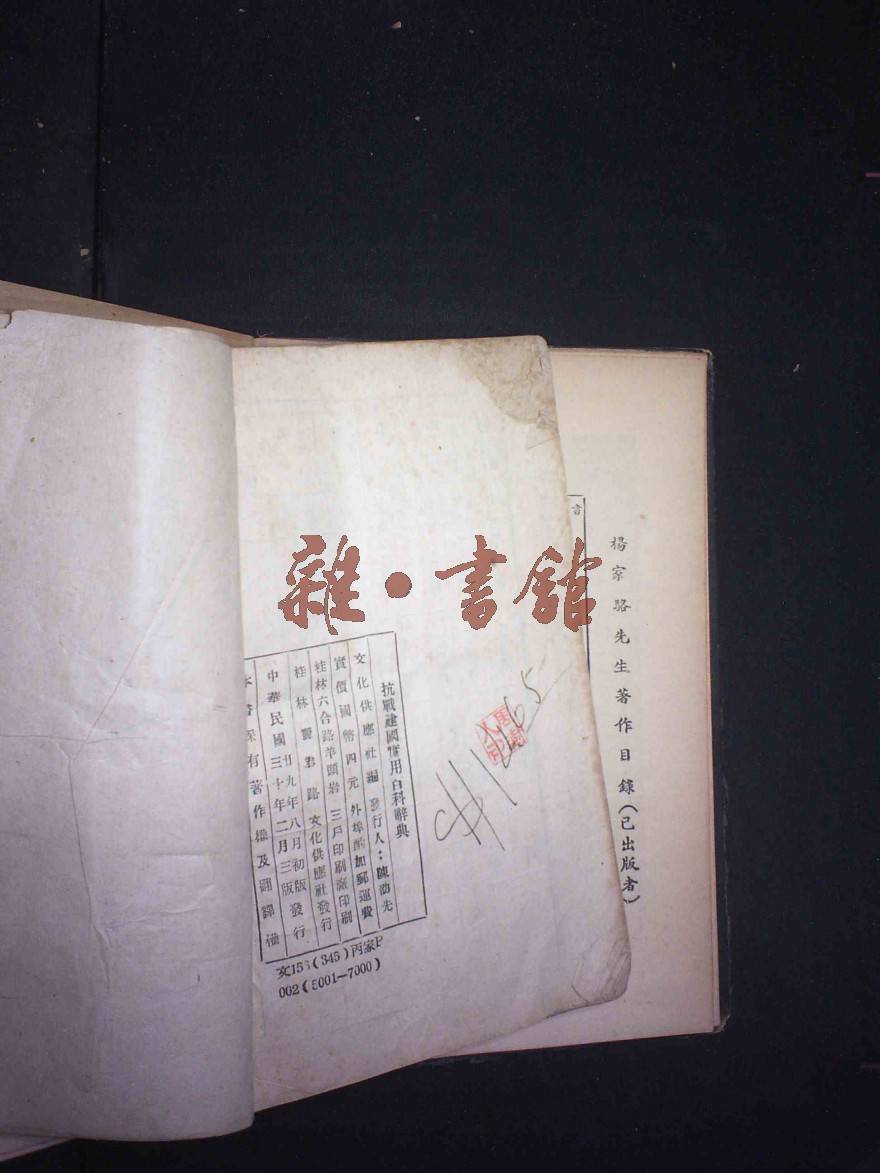 雜·書館
楊家駱先生著作目錄（已出版者）
抗戰建國實用百科辭典
文化供應社編 發行人：陳劭先
實價國幣四元 外埠酌加郵運費
桂林六合路羊頭岩 三戶印刷廠印刷
桂林 路 文化供應社發行
中華民國廿九年八月初版發行
三十年二月三版
本書保有著作權及翻譯權
文15 (345)丙家P
002(5001—7000)